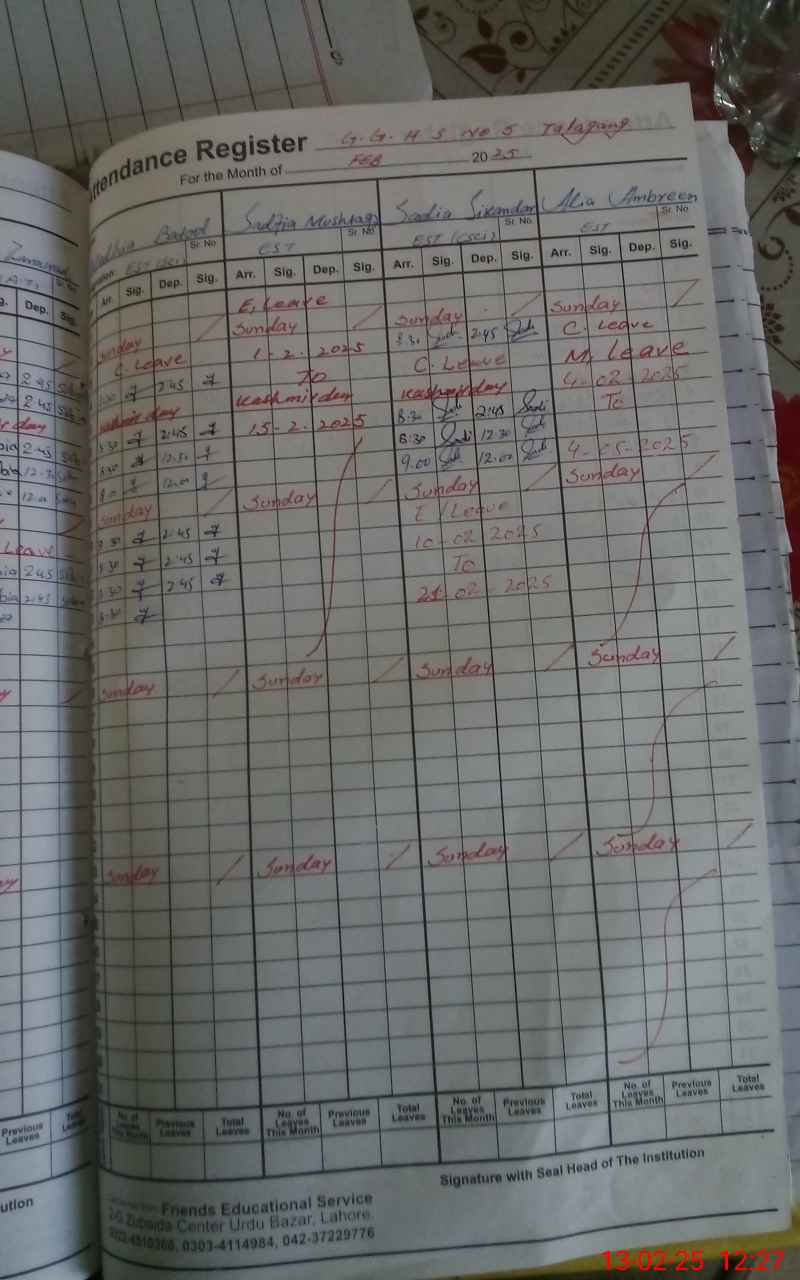 Attendance Register G.G.H S No 5 Talagang
For the Month of FEB 2025
Batool Sadjia Mushtaq Sadia Sikandar Alia Ambreen
Sr. No Sr. No. Sr. No. Sr. No.
EST (SCI) EST EST (CSCI) EST
Dep. Sig. Arr. Sig. Dep. Sig. Arr. Sig. Dep. Sig. Arr. Sig. Dep. Sig. Arr. Sig. Dep. Sig.
E, Leave
Sunday Sunday Sunday Sunday
C. Leave 1-2-2025 8.30 2.45 C. Leave
8.30 2.45 To C. Leave M. Leave
Kashmir day Kashmir day Kashmir day 4-02-2025
2.45 8.30 2.45 15-2-2025 8:30 2:45 To
2.45 8.30 12.30 8:30 12.30
12.30 8.0 12.00 9.00 12.00 4-05-2025
12.0 Sunday Sunday Sunday Sunday
Leave 8.30 2.45 E/Leave
2.45 8.30 2.45 10-02-2025
2.45 8.30 2.45 To
8.30 21-02-2025
Sunday Sunday Sunday Sunday
Sunday Sunday Sunday Sunday
Previous Leaves Total Leaves No. of Leaves This Month Previous Leaves Total Leaves No. of Leaves This Month Previous Leaves Total Leaves No. of Leaves This Month Previous Leaves Total Leaves No. of Leaves This Month Previous Leaves Total Leaves
Signature with Seal Head of The Institution
Friends Educational Service
Zubaida Center Urdu Bazar, Lahore.
0303-4114984, 042-37229776
13-02-25 12:27